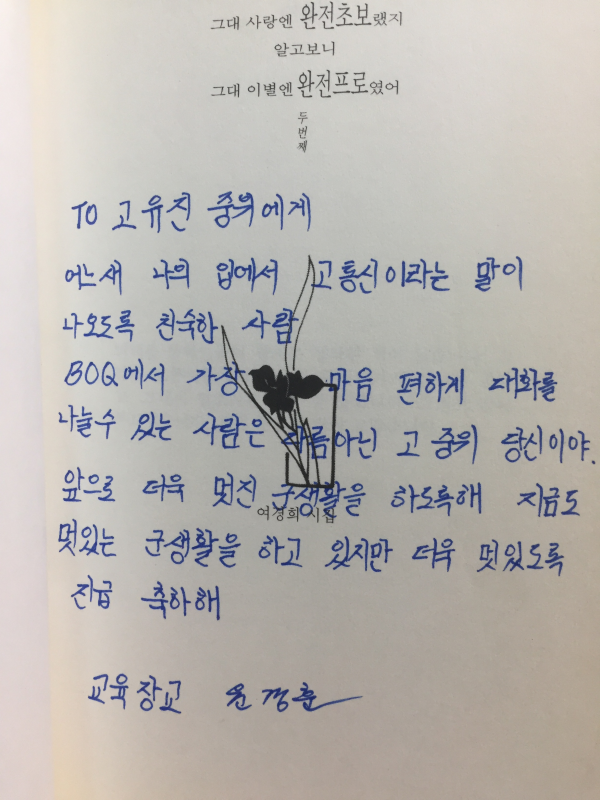 그대 사랑엔 완전초보랬지
알고보니
그대 이별엔 완전프로였어
두번째
TO 고유진 중위에게
어느새 나의 입에서 고통신이라는 말이
나오도록 친숙한 사람
BOQ에서 가장 마음 편하게 대화를
나눌수 있는 사람은 다름아닌 고 중위 당신이야.
앞으로 더욱 멋진 군생활을 하도록해 지금도
여경희 시집
멋있는 군생활을 하고 있지만 더욱 멋있도록
진급 축하해
교육장교 윤경훈